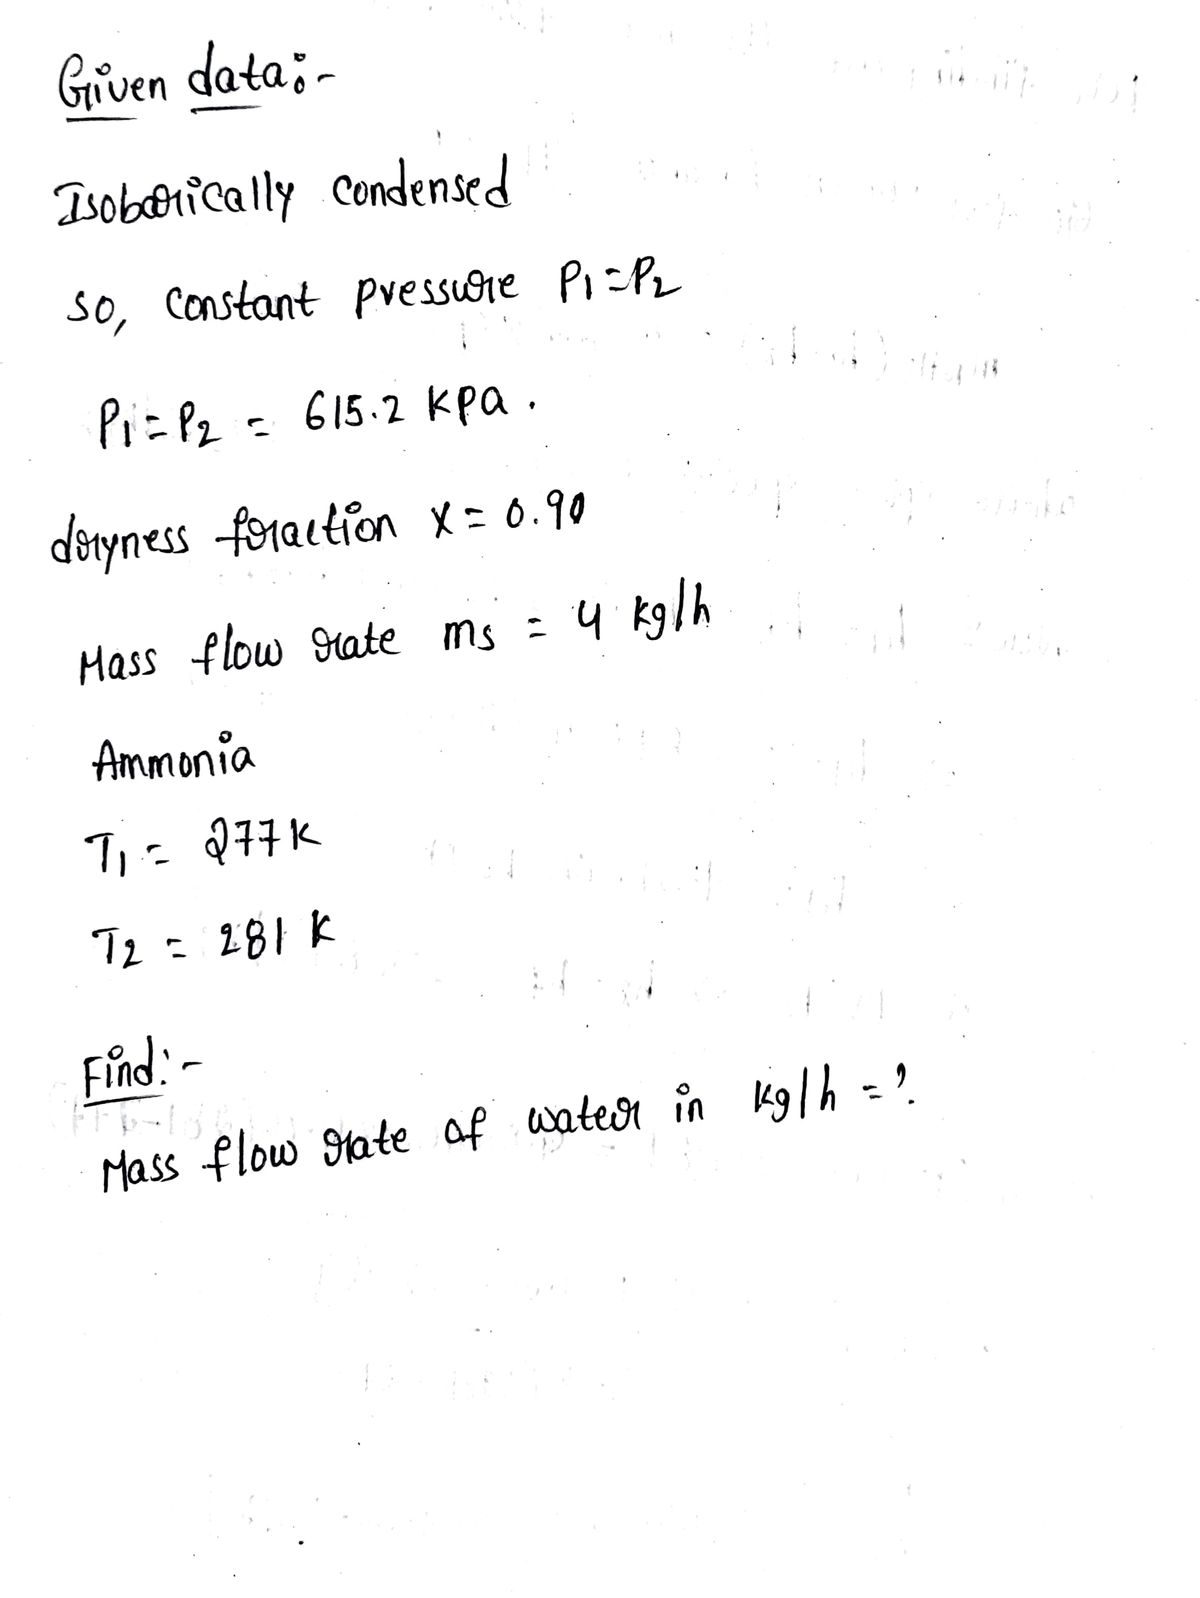 Given data:-
Isobarically condensed
so, constant pressure P1=P2
P1=P2 = 615.2 kpa.
dryness fraction x = 0.90
Mass flow rate ms = 4 kg/h
Ammonia
T1 = 277K
T2 = 281 K
Find:-
Mass flow rate of water in kg/h = ?